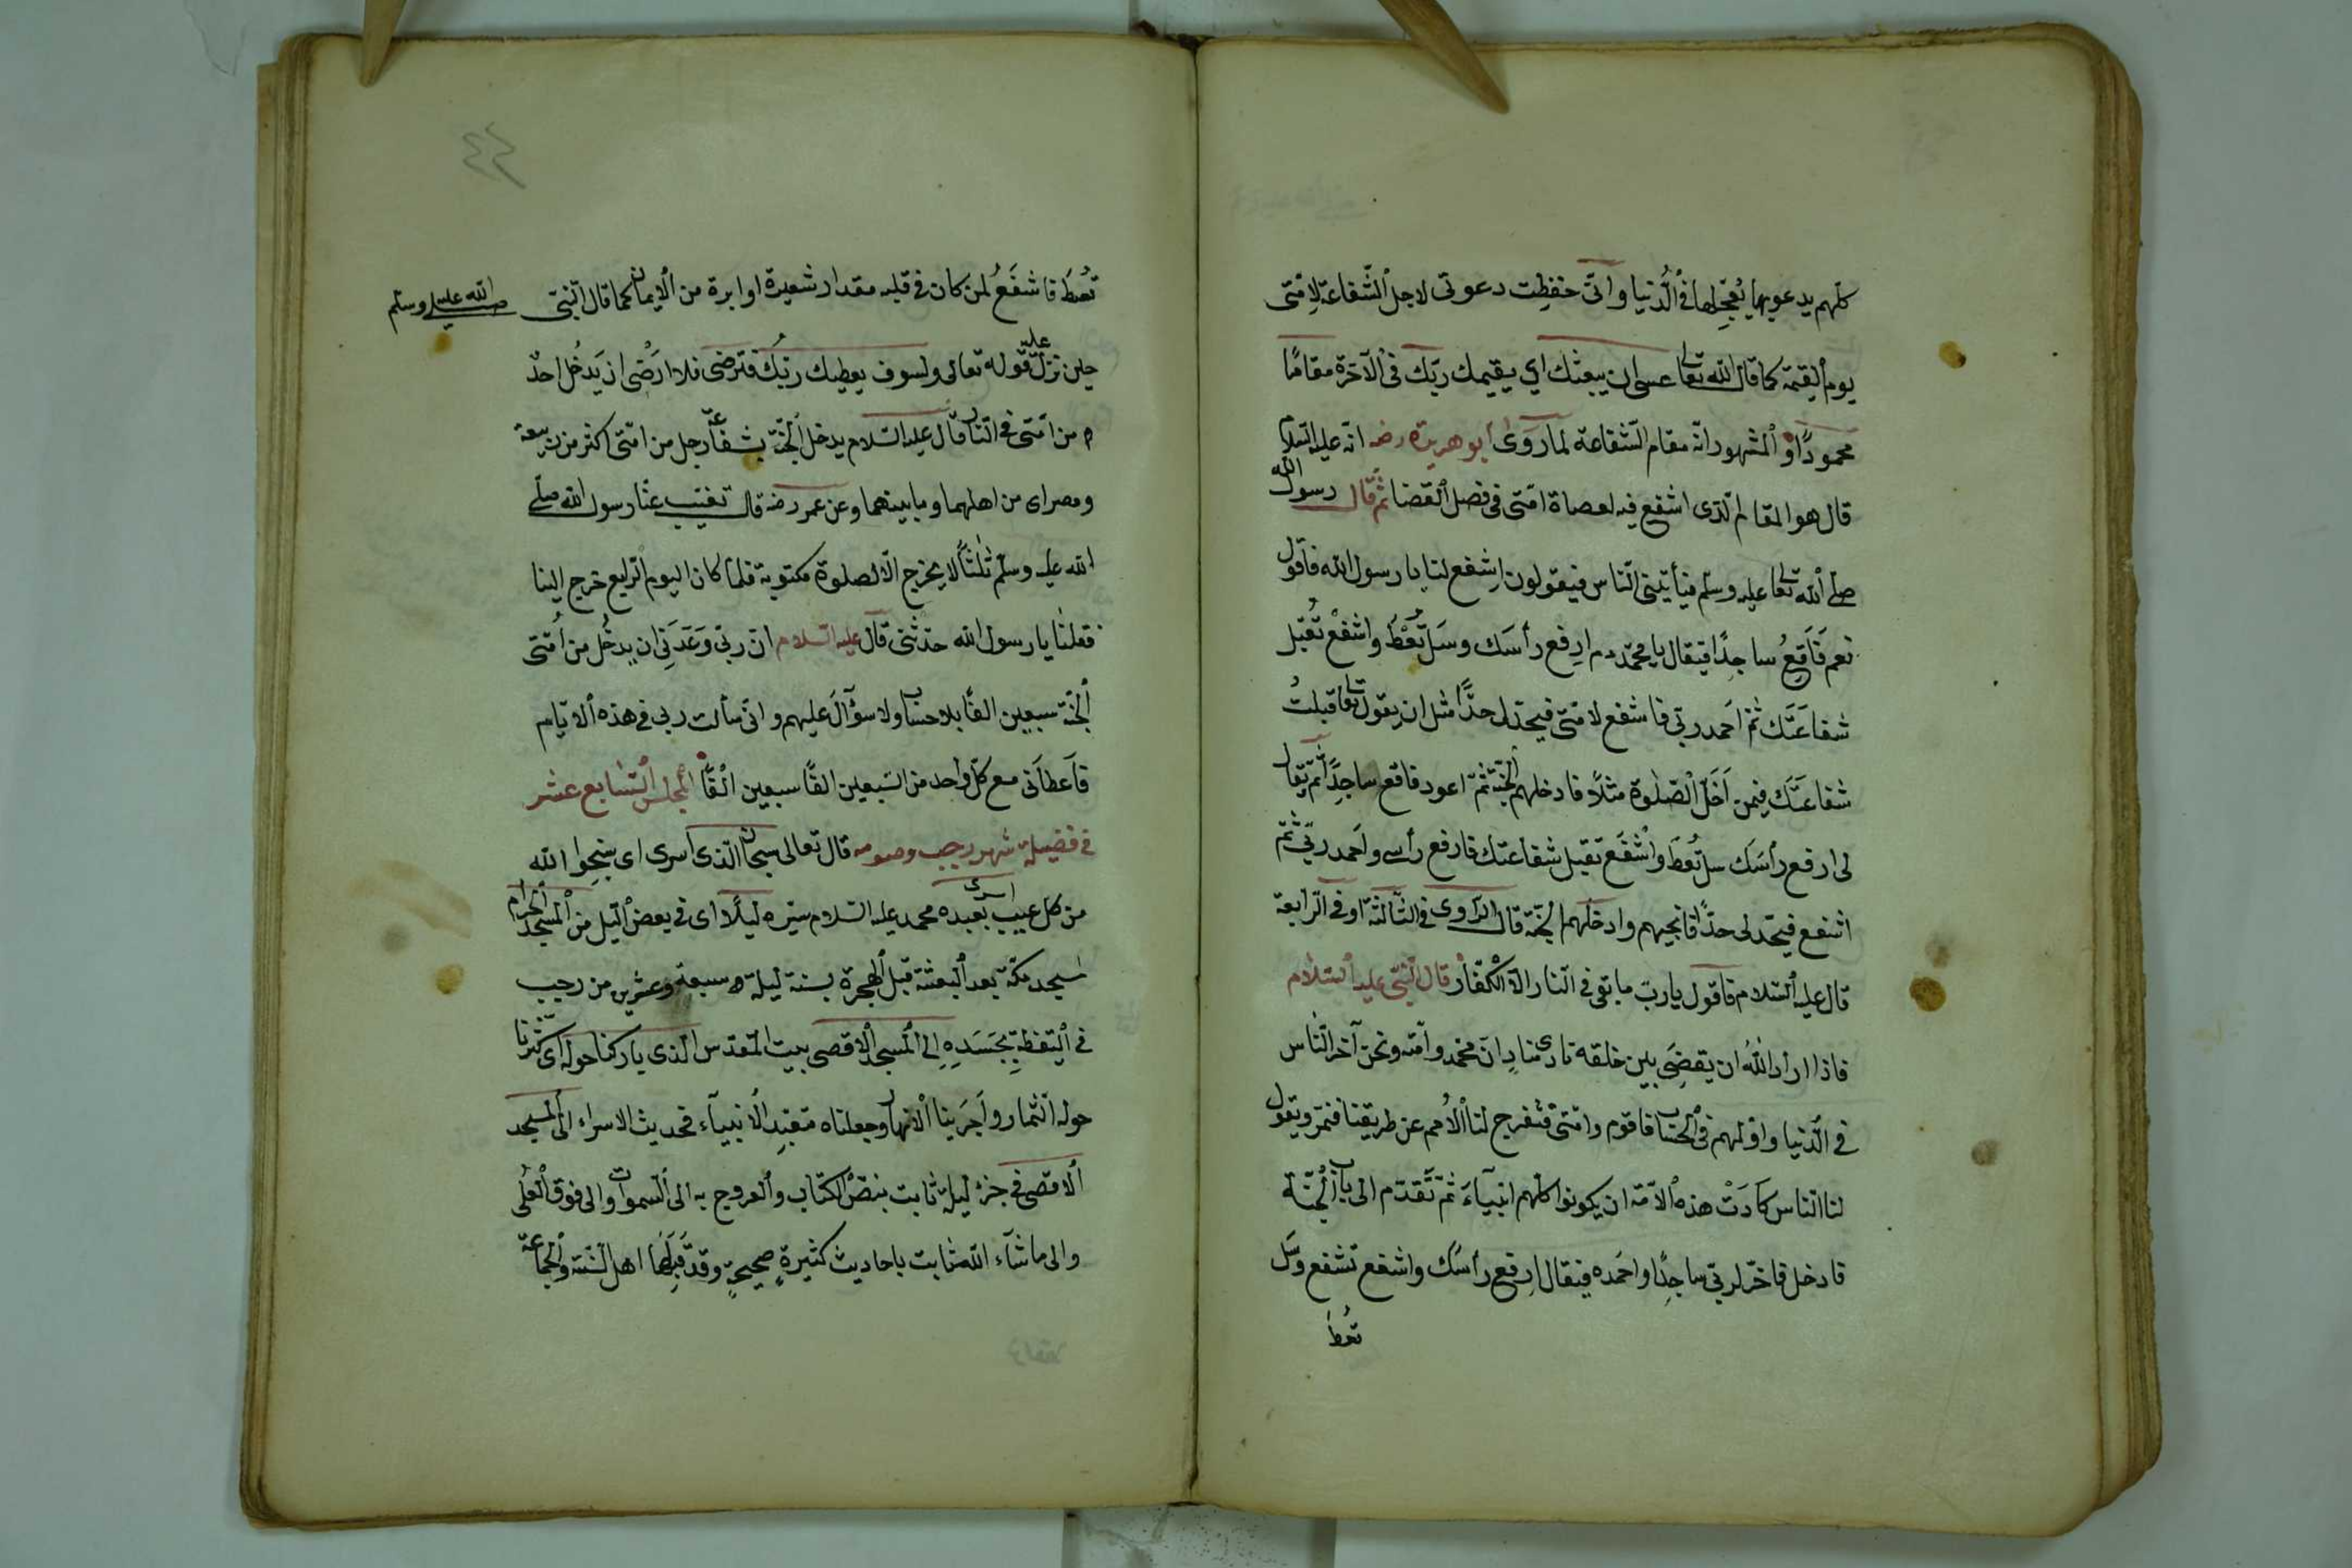 كلهم يدعو بها يعجلها فى الدنيا وانى حفظت دعوتى لاجل الشفاعة لامتى
يوم القيمة كما قال الله تعالى عسى ان يبعثك اي يقيمك ربك فى الآخرة مقامًا
محمودًا والمشهور انه مقام الشفاعة لما روى ابو هريرة رضه انه عليه السلام
قال هو المقام الذى اشفع فيه لعصاة امتى فى فصل القضا ثم قال رسول الله
صلى الله تعالى عليه وسلم فيأتينى الناس فيقولون اشفع لنا يا رسول الله فاقول
نعم فَاَقَعُ ساجدًا فيقال يا محمد ارفع رأسك وسل تُعْطَ واشفع تُقبل
شفاعتك ثم احمد ربى فاشفع لامتى فيحد لى حدًّا مثل ان يقول تعالى قبلتُ
شفاعتك فيمن اَخَلّ الصلوة مثلًا فادخلهم الجنة ثم اعود فاقع ساجدًا ثم يقال
لى ارفع رأسك سل تُعطَ واشفع تقبل شفاعتك فارفع رأسى واحمد ربى ثم
اشفع فيحد لى حدًّا فانجيهم وادخلهم الجنة قال الراوى فى الثالثة او فى الرابعة
قال عليه السلام فاقول يا ربّ ما بقى فى النار الا الكفار قال النبى عليه السلام
فاذا اراد اللهُ ان يقضى بين خلقه نادى منادٍ ان محمد وامته ونحن آخر الناس
فى الدنيا واولهم فى الحساب فاقوم وامتى فتفرج لنا الامم عن طريقنا فنمر ويقول
لنا الناس كَادَتْ هذه الامة ان يكونوا كلهم انبيآءَ ثم تقدم الى باب الجنة
فادخل فاخرّ لربى ساجدًا واحمده فيقال ارفع رأسك واشفع تشفع وسل
تعطَ
٤٤
تُعطَ فاشفَعُ لمن كان فى قلبه مقدار شعيرة او ابرة من الايمان كما قال النبى صلى الله عليه وسلم
حين نزل عليه قوله تعالى ولسوف يعطيك ربك فترضى فلا ارضى ان يَدخُل احدٌ
من امتى فى النار قال عليه السلام يدخل الجنة بشفاعة رجل من امتى اكثر من ربيعة
ومصر اى من اهلهما وما بينهما وعن عمر رضه قال تغيب عنا رسول الله صلى
الله عليه وسلم ثلثًا لا يخرج الا لصلوة مكتوبة فلما كان اليوم الرابع خرج الينا
فقلنا يا رسول الله حدثنى قال عليه السلام ان ربى وَعَدَنِى ان يدخُل من اُمتى
الجنة سبعين الفًا بلا حساب ولا سؤآلَ عليهم وانى سألت ربى فى هذه الايام
فاَعطانى مع كل واحد من السبعين الفًا سبعين الفًا المجلس السابع عشر
فى فضيلة شهر رجب وصومه قال تعالى سبحان الذى اسرى اى سبحوا الله
من كل عيب اسرى بعبده محمد عليه السلام سيره ليلًا اى فى بعض الليل من المسجد الحرام
مسجد مكة بعد البعثة قبل الهجرة بسنة ليلة سبعة وعشرين من رجب
فى اليقظة بِجَسَدِهِ اِلى المسجد الاقصى بيت المقدس الذى باركنا حوله اى كثرنا
حوله الثمار واَجرَينا الانهار وجعلناه متعبد الانبيآء فحديث الاسراء الى المسجد
الاقصى فى جزء ليلة ثابت بنص الكتاب والعروج به الى السموات والى فوق العلى
والى ما شآء الله ثابت باحاديث كثيرةٍ صحيحةٍ وقد قَبِلَها اهل السنة والجماعة